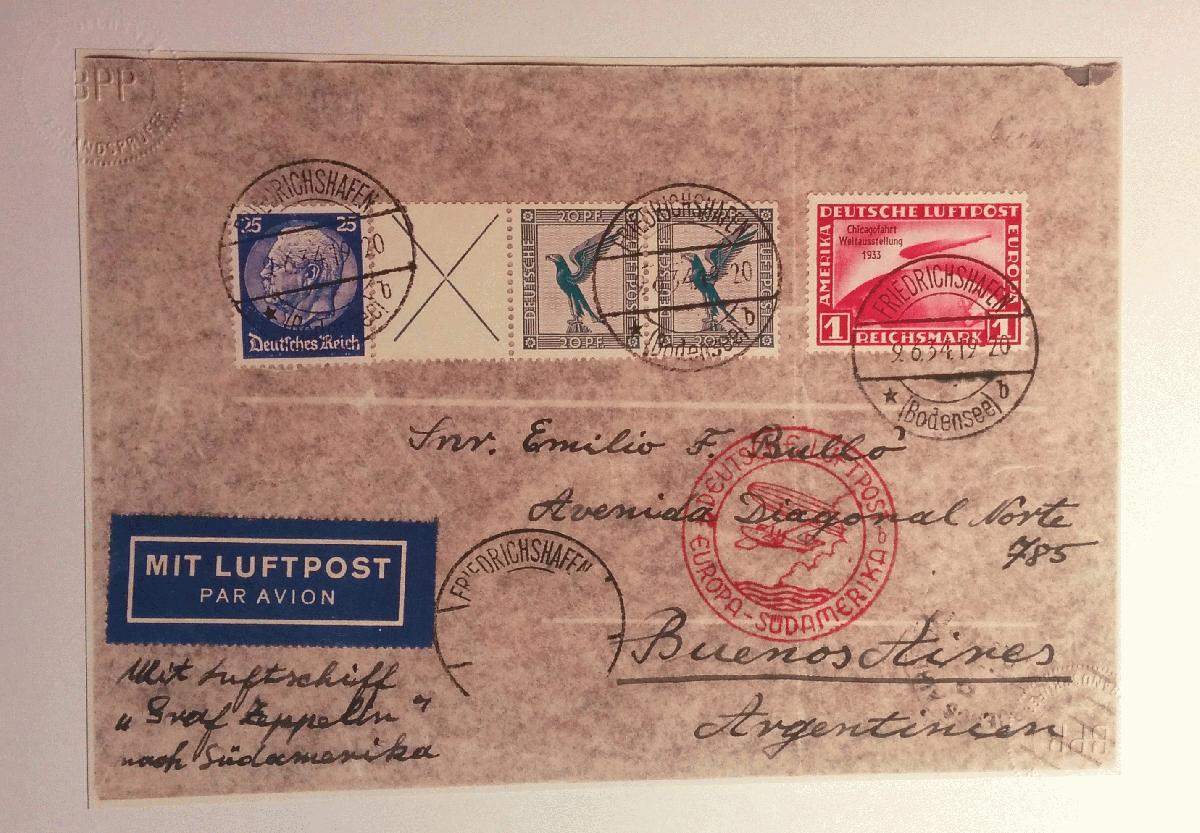 BPP
FRIEDRICHSHAFEN
25 25
Deutsches Reich
20 PF.
DEUTSCHE
20 PF.
FRIEDRICHSHAFEN
b
(Bodensee)
DEUTSCHE LUFTPOST
AMERIKA
EUROPA
Chicagofahrt
Weltausstellung
1933
1 REICHSMARK 1
FRIEDRICHSHAFEN
9.6.34.19-20
b
(Bodensee)
Snr. Emilio F. Bullo
Avenida Diagonal Norte
785
Buenos Aires
Argentinien
DEUTSCHE LUFTPOST
b
EUROPA-SÜDAMERIKA
FRIEDRICHSHAFEN
MIT LUFTPOST
PAR AVION
Mit Luftschiff
„Graf Zeppelin"
nach Südamerika